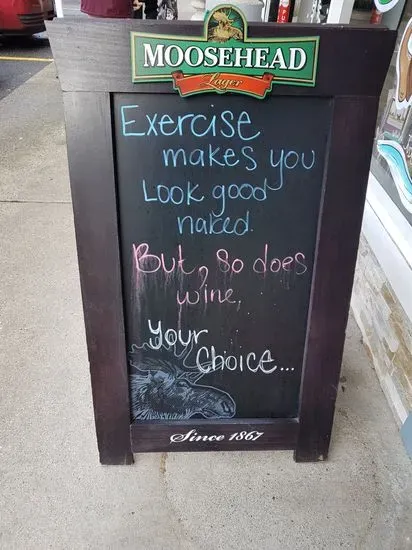 MOOSEHEAD
Lager
Exercise
makes you
Look good
naked.
But, so does
wine,
Your
Choice...
Since 1867